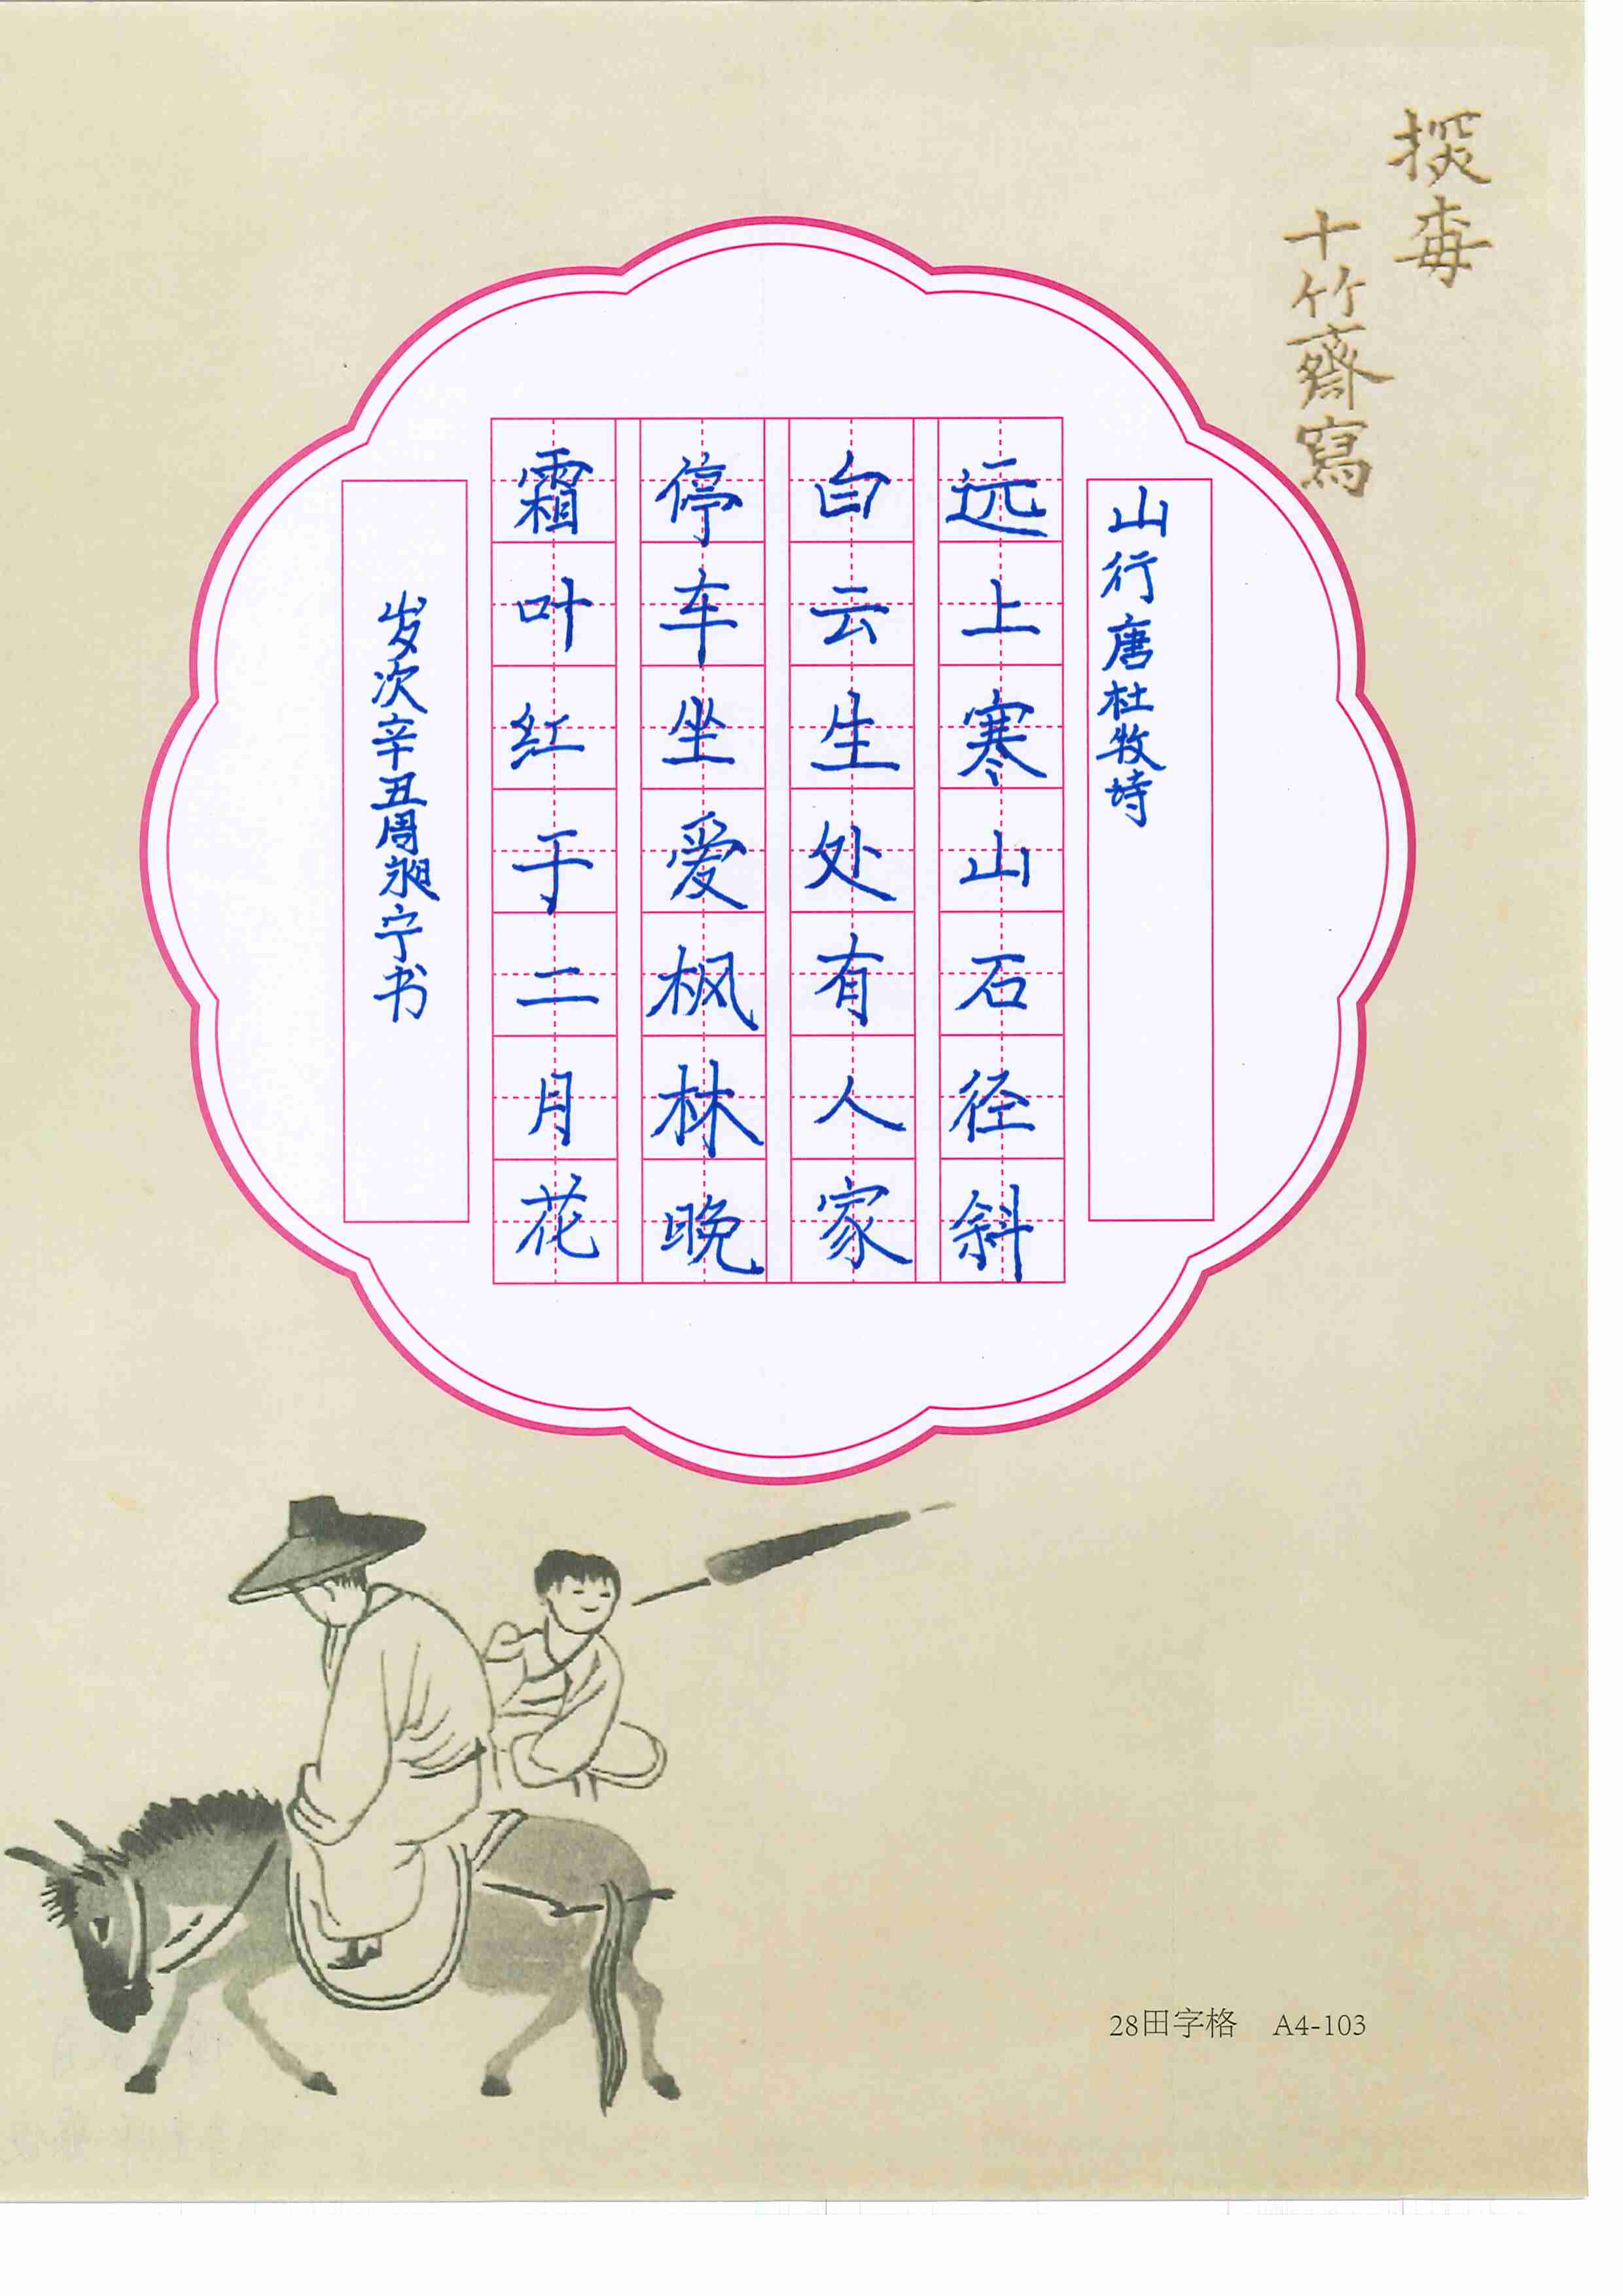 探梅
十竹齋寫
山行唐杜牧诗
远上寒山石径斜
白云生处有人家
停车坐爱枫林晚
霜叶红于二月花
岁次辛丑周昶宁书
28田字格 A4-103